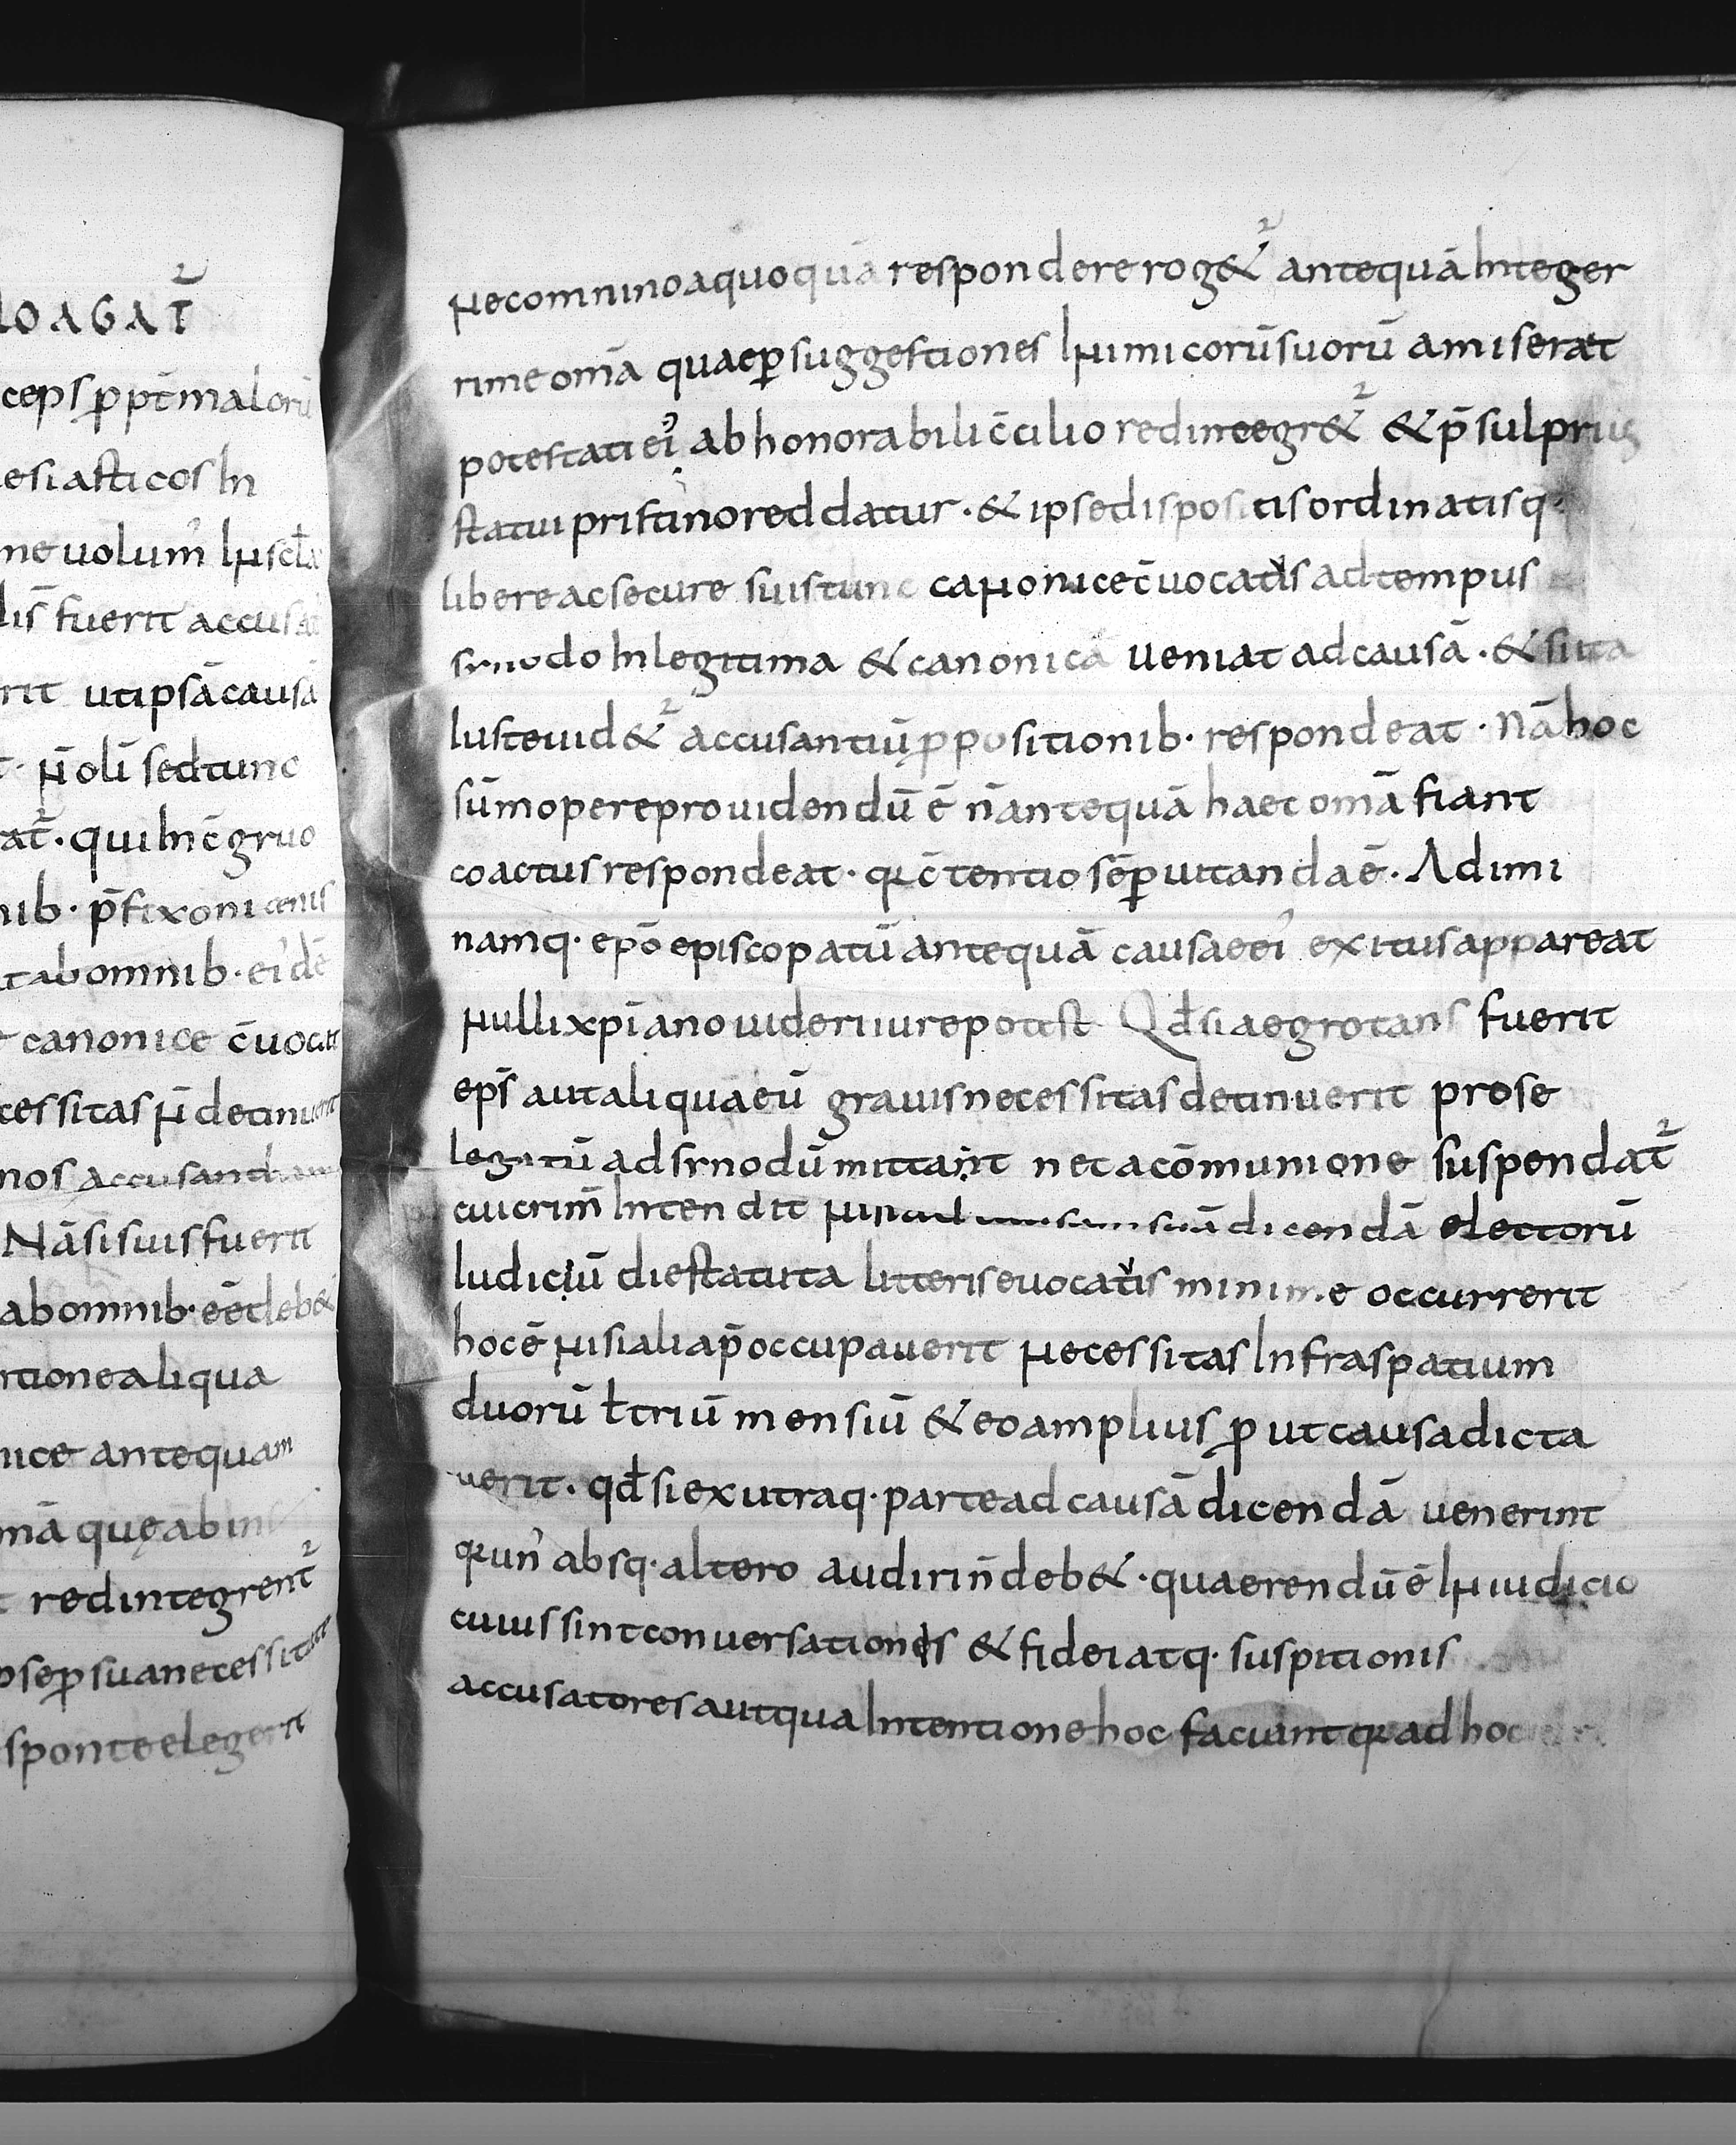 OAGAT̄
ceps ꝓpt̄ malorū
esiasticos In
ne uolum' Inscla
lis fuerit accusat
rit ut ipsā causā
n̄ oli sed tunc
rat̄. qui In c̄gruo
nib. p̄fixo ni cenis
tab omnib. ei' dē
canonice c̄uocat
cessitas n̄ detinuerit
nos accusant
Nā si suis fuerit
ab omnib. eē deb&
rtione aliqua
nice antequam
mā quę ab in
redintegrent̄
pse ꝑ sua necessitate
sponte elegerit
nec omnino a quoquā respondere rog&ur antequā Integer
rime om̄a quae ꝑ suggestiones Inimicorū suorū amiserat
potestati ei' ab honorabili c̄cilio redintegr&ur & p̄sul prius
statui pristino reddatur. & ipse dispositis ordinatisq.
libere ac secure suis tunc canonice c̄uocatis ad tempus
synodo In legitima & canonicā ueniat ad causā. & si ita
Iuste uid&ur accusantiū ꝓpositionib. respondeat. Nā hoc
sūmopere prouidendū ē n̄ antequā haec om̄a fiant
coactus respondeat. q̄ c̄tentio sēꝑ uitanda ē. Adimi
namq. ep̄o episcopatū antequā causae ei' exitus appareat
nulli xp̄iano uideri iure potest Qđ si aegrotans fuerit
ep̄s aut aliqua eū grauis necessitas detinuerit pro se
legatū ad synodū mittant nec a cōmunione suspendat̄
cui crim̄ Intendit nisi ad causam suā dicendā electorū
Iudiciū die statuta litteris euocatus minime occurrerit
hoc ē nisi alia p̄occupauerit necessitas Infra spatium
duorū ł triū mensiū & eo amplius ꝓut causa dicta
uerit. qđ si ex utraq. parte ad causā dicendā uenerint
q̄ un' absq. altero audiri n̄ deb&. quaerendū ē In iudicio
cuius sint conuersationis & fidei atq. suspitionis
accusatores aut qua Intentione hoc faciunt q̄ ad hoc